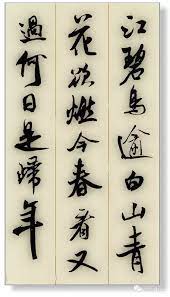 江碧鸟逾白山青
花欲燃今春看又
過何日是歸年